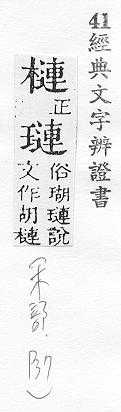 41經典文字辨證書
槤正
璉俗瑚璉說
文作胡槤
(木部.37)